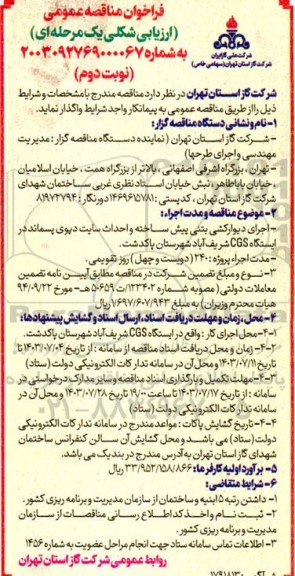 فراخوان مناقصه عمومی
(ارزیابی شکلی یک مرحله ای)
به شماره ۲۰۰۳۰۹۲۷۶۹۰۰۰۰۶۷
(نوبت دوم)
شرکت ملی گاز ایران
شرکت گاز استان تهران (سهامی خاص)
شرکت گاز استان تهران در نظر دارد مناقصه مندرج با مشخصات و شرایط
ذیل را از طریق مناقصه عمومی به پیمانکار واجد شرایط واگذار نماید.
۱- نام و نشانی دستگاه مناقصه گزار:
- شرکت گاز استان تهران (نماینده دستگاه مناقصه گزار: مدیریت
مهندسی و اجرای طرحها)
- تهران، بزرگراه اشرفی اصفهانی، بالاتر از بزرگراه همت، خیابان اسلامیان
، خیابان باباطاهر، نبش خیابان استاد نظری غربی ساختمان شهدای
شرکت گاز استان تهران، کد پستی: ۱۴۶۹۶۱۵۷۸۱ دورنگار: ۸۱۹۷۲۷۹۴
۲- موضوع مناقصه و مدت اجراء:
- اجرای دیوارکشی بتنی پیش ساخته و احداث سایت دپوی پسماند در
ایستگاه CGS شریف آباد شهرستان پاکدشت.
- مدت اجرا پروژه: ۲۴۰ (دویست و چهل) روز تقویمی.
۳- نوع و مبلغ تضمین شرکت در مناقصه مطابق آیین نامه تضمین
معاملات دولتی (مصوبه شماره ۱۲۳۴۰۲/ت ۵۰۶۵۹ هـ- مورخ ۹۴/۰۹/۲۲
هیات محترم وزیران) به مبلغ ۱/۶۹۷/۶۰۷/۹۴۳ ریال
۴- محل، زمان و مهلت دریافت اسناد، ارسال اسناد و گشایش پیشنهادها:
۴-۱- محل اجرای کار: واقع در ایستگاه CGS شریف آباد شهرستان پاکدشت.
۴-۲- زمان و محل دریافت اسناد مناقصه از سامانه: از تاریخ ۱۴۰۳/۰۷/۰۴ تا
تاریخ ۱۴۰۳/۰۷/۱۱ و محل آن در سامانه تدارکات الکترونیکی دولت (ستاد)
۴-۳- مهلت تکمیل و بارگذاری اسناد مناقصه و سایر مدارک درخواستی در
سامانه: از تاریخ ۱۴۰۳/۰۷/۱۷ تا ساعت ۱۹:۰۰ تاریخ ۱۴۰۳/۰۷/۲۸ و محل آن در
سامانه تدارکات الکترونیکی دولت (ستاد)
۴-۴- تاریخ گشایش پاکات: مواعد مندرج در سامانه تدارکات الکترونیکی
دولت (ستاد) می باشد و محل گشایش آن سالن کنفرانس ساختمان
شهدای گاز استان تهران به آدرس مندرج در بند یک می باشد.
۵- برآورد اولیه کارفرما: ۳۳/۹۵۲/۱۵۸/۸۶۶ ریال
۶- شرایط متقاضی:
۱- داشتن رتبه ۵ ابنیه و ساختمان از سازمان مدیریت و برنامه ریزی کشور.
۲- ثبت نام و اخذ کد اطلاع رسانی مناقصات از سازمان
مدیریت و برنامه ریزی کشور.
۳- اطلاعات تماس سامانه ستاد جهت انجام مراحل عضویت به شماره ۱۴۵۶
روابط عمومی شرکت گاز استان تهران